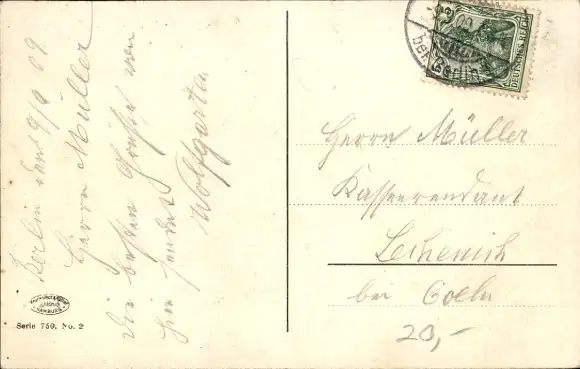 Berlin den 9/9 09
Herrn Müller
die besten Grüße von
hier sendet
Wolfgarten
HAMBURG
Serie 750, No. 2
09
bei Berlin
DEUTSCHES REICH
Herrn Müller
Kassenrendant
Lechenich
bei Coeln
20,-